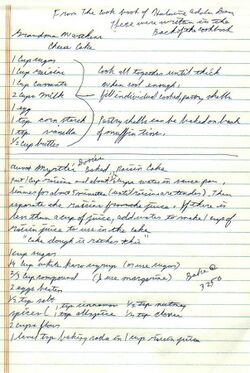 From the cook book of
These were written in the
Back of the cookbook
Grandma
Chess Cake
1 Cup sugar
1 Cup raisins Cook all together until thick
1 Cup currants When cool enough,
2 cups milk fill individual cooked pastry shells
1 egg
1 tsp corn starch Pastry shells can be baked on back
1 tsp vanilla of muffin tins.
1/2 Cup butter
Aunt Myrtle Boiled Raisin Cake
put 1 cup raisins and about cups water in sauce pan,
simmer for about minutes (until raisins are tender). Then
separate the raisins from the juice. If there is
less than a cup of juice, add water to make 1 cup of
raisin juice to use in the cake
"Cake dough is rather thin"
1 Cup sugar
1/4 Cup white karo syrup (or use sugar)
2/3 Cup compound (I use margarine) Bake @
2 eggs beaten 325°
1/2 tsp salt
spices 1 tsp cinnamon 1/2 tsp nutmeg
1 tsp allspice 1/2 tsp cloves
2 cups flour
1 level tsp baking soda in 1 cup raisin juice